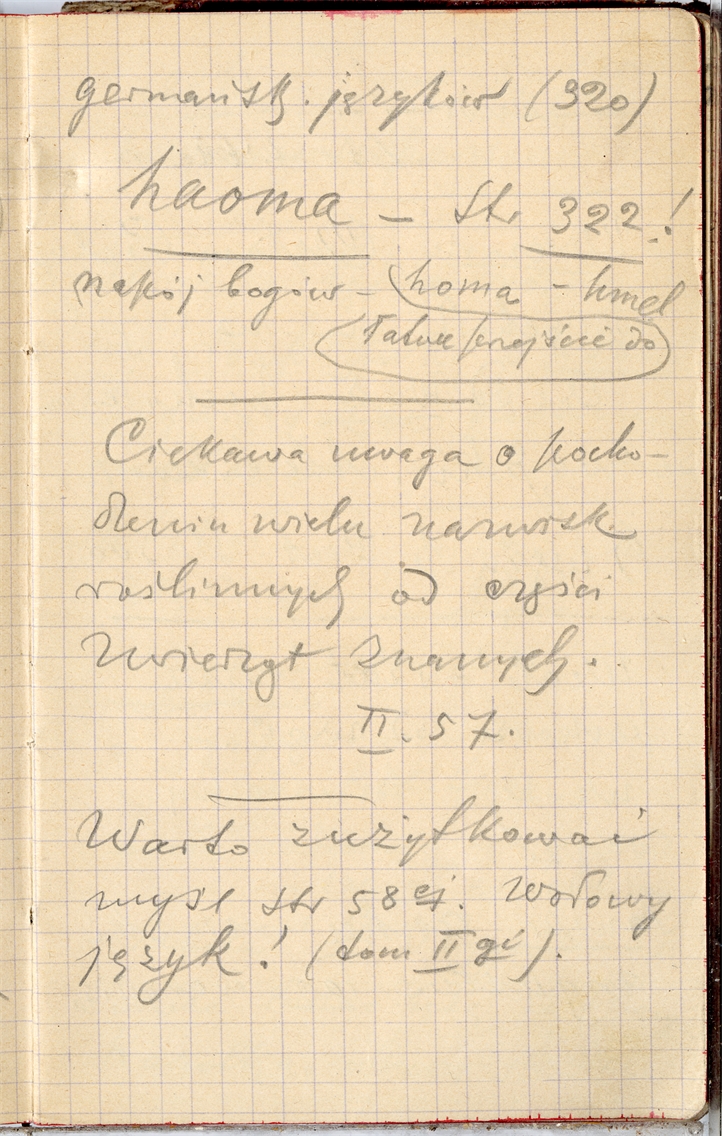 germańsk. języków (320)
haoma – str 322!
napój bogów – homa – hmel
łatwe przejście do
Ciekawa uwaga o pocho-
dzeniu wielu nazwisk
roślinnych od części
zwierząt znanych.
II. 57.
Warto zużytkować
myśl str 58 ej. Wołowy
język! (tom II gi).